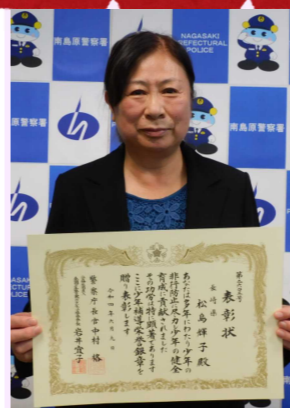 NAGASAKI
PREFECTURAL
POLICE
南島原警察署
南島原警察署
南島原警察署
表彰状
長崎県
松島輝子殿
あなたは多年にわたり少年の
非行防止に尽力し少年の健全
育成に貢献されました
その功労は特に顕著であります
ここに少年補導栄誉銅章を
贈り表彰します
令和四年六月九日
警察庁長官中村格
岩井宜子